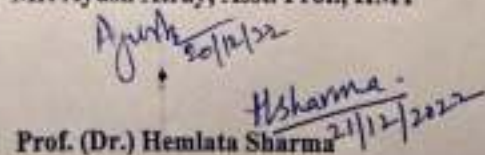 Ayush
20/12/22
Hsharma.
21/12/2022
Prof. (Dr.) Hemlata Sharma